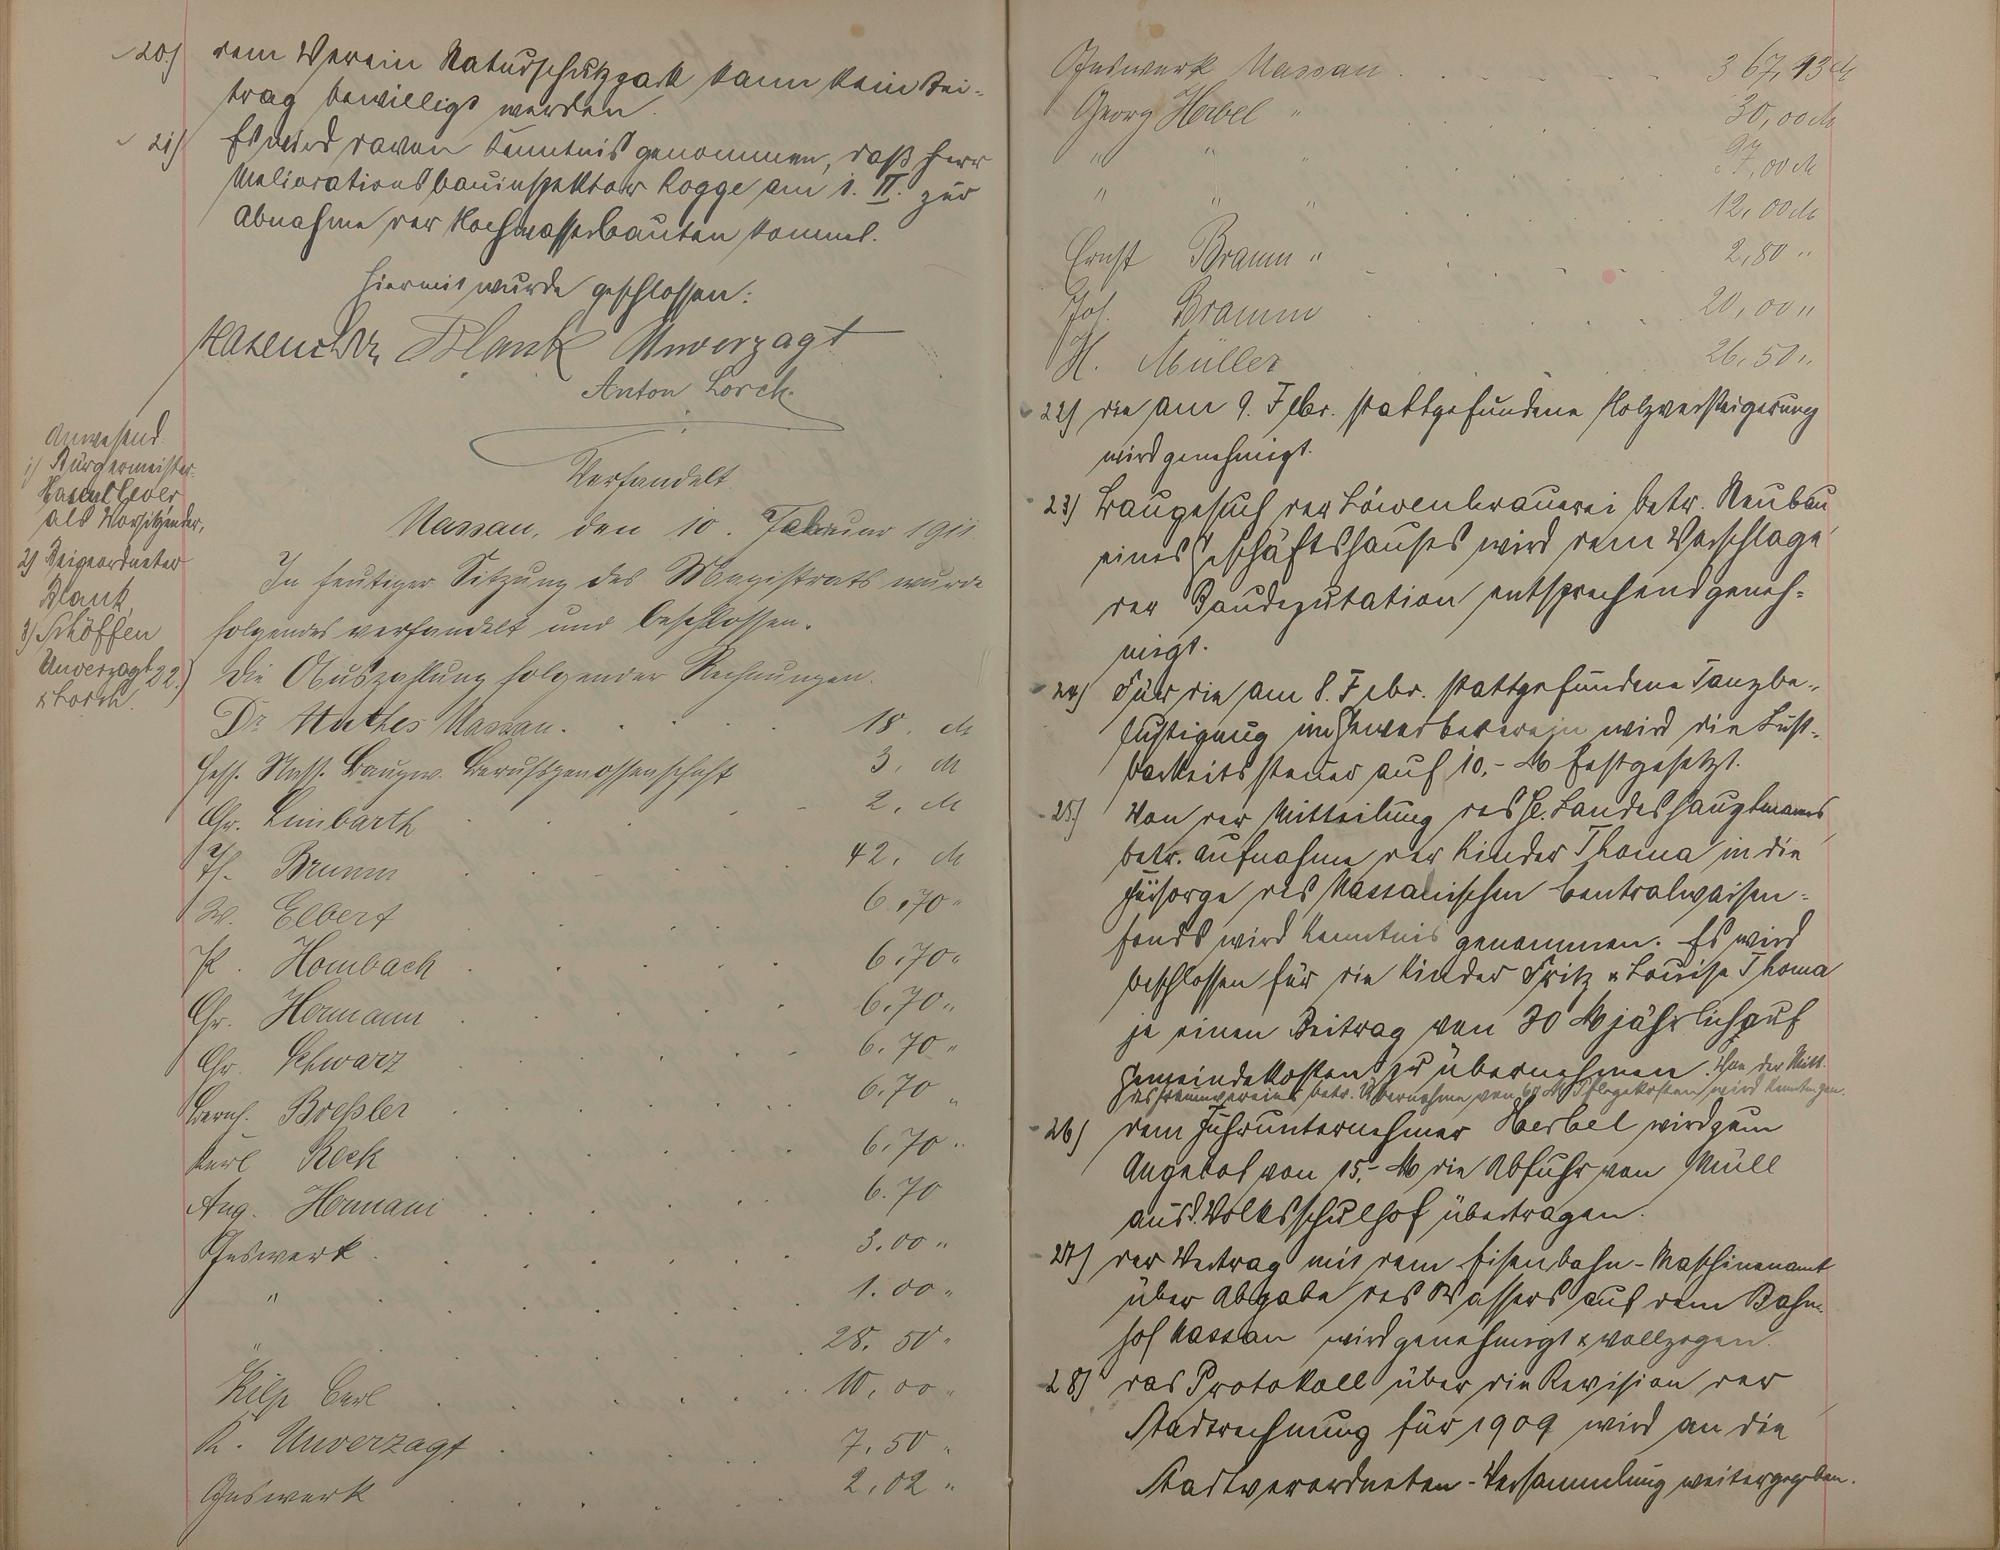 20.) dem Verein Naturschutzpark kann kein Bei-
trag bewilligt werden.
21) Es wird davon Kenntnis genommen, daß Herr
Meliorationsbauinspektor Rogge am 1. II. zur
Abnahme der Hochwasserbauten kommt.
Hiermit wurde geschlossen:
Hasenclever Blank Unverzagt
Anton Lorch.
Anwesend:
1) Bürgermeister
Hasenclever
als Vorsitzender,
2) Beigeordneter
Blank,
3) Schöffen
Unverzagt
& Lorch.
Verhandelt
Nassau, den 10. Februar 1911
In heutiger Sitzung des Magistrats wurde
folgendes verhandelt und beschlossen.
22.) Die Auszahlung folgender Rechnungen.
Dr. Nassau. 18. M
Hess. Nass. Baugew. Berufsgenossenschaft 3. M
Chr. Limbarth 2. M
Th. Bramm 42. M
W. Elbert 6.70 "
P. Hombach 6.70 "
Chr. Hermann 6.70 "
Chr. Schwarz 6.70 "
Bernh. Bressler 6.70 "
Karl Reck 6.70 "
Aug. Hermani 6.70
Gaswerk 3.00 "
" 1.00 "
" 28.50 "
Kilp Carl 10,00 "
K. Unverzagt 7.50 "
Gaswerk 2,02 "
Gaswerk Nassau 367,13 M
Georg Herbel " 30,00 M
" " " ,00 M
" " " 12,00 M
Ernst Bramm " 2,80 "
Joh. Bramm 20,00 "
H. Müller 26,50 "
22) die am 9. Febr. stattgefundene Holzversteigerung
wird genehmigt.
23) Baugesuch der Löwenbrauerei betr. Neubau
eines Geschäftshauses wird dem Vorschlage
der Baudeputation entsprechend geneh-
migt.
24) Für die am 8. Febr. stattgefundene Tanzbe-
lustigung im Gewerbeverein wird die Lust-
barkeitssteuer auf 10,- M festgesetzt.
25) Von der Mitteilung des H. Landeshauptmanns
betr. Aufnahme der Kinder Thoma in die
Fürsorge des Nassauischen Centralwaisen-
fonds wird Kenntnis genommen. Es wird
beschlossen für die Kinder Fritz & Louise Thoma
je einen Beitrag von 30 M jährlich auf
Gemeindekosten zu übernehmen. Von der Mitt.
des Frauenvereins betr. Übernahme von M Pflegekosten wird Kenntn. gen.
26) dem Fuhrunternehmer Herbel wird zum
Angebot von 15,- M die Abfuhr von Müll
aus d. Volksschulhof übertragen.
27) der Vertrag mit dem Eisenbahn-Maschinenamt
über Abgabe des Wassers auf dem Bahn-
hof Nassau wird genehmigt & vollzogen.
28) das Protokoll über die Revision der
Stadtrechnung für 1909 wird an die
Stadtverordneten-Versammlung weitergegeben.